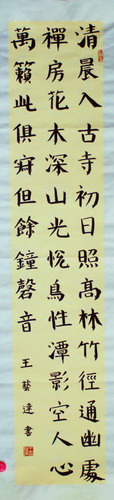 清晨入古寺初日照髙林竹徑通幽處
禪房花木深山光悅鳥性潭影空人心
萬籟此俱寂但餘鐘磬音 王藝達書